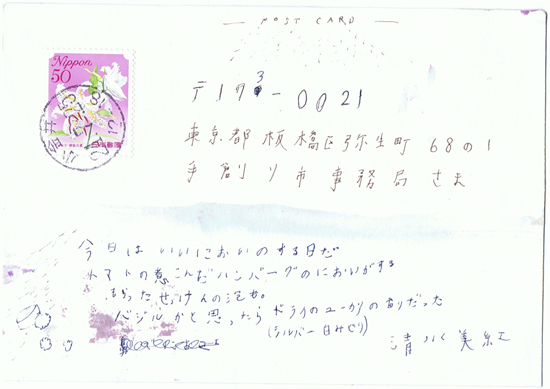 POST CARD
Nippon
50
日本郵便
小金井
〒173-0021
東京都板橋区弥生町68の1
手創り市事務局さま
今日はいいにおいのする日だ
トマトの煮こんだハンバーグのにおいがする
せっけんの泡
バジルかと思ったらドライのユーカリの香りだった
(シルバー白みどり)
清水美紅